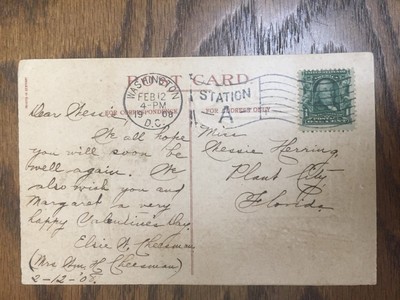 POST CARD.
WASHINGTON
FEB 12
4-PM
1908
D.C.
STATION
A
Dear Nessie
We all hope
you will soon be
well again. We
also wish you and
Margaret a very
happy Valentine's Day.
Elsie W. Cheesman
(Mrs Wm. H. Cheesman)
2-12-'08.
Miss
Nessie Herring
Plant City
Florida.